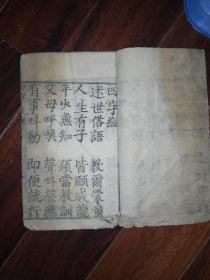 四字經
述世俗語 教爾蒙童
人生有子 皆願成龍
年少無知 須當教訓
父母呼喚 聲叫聲應
有事叫動 即便就行